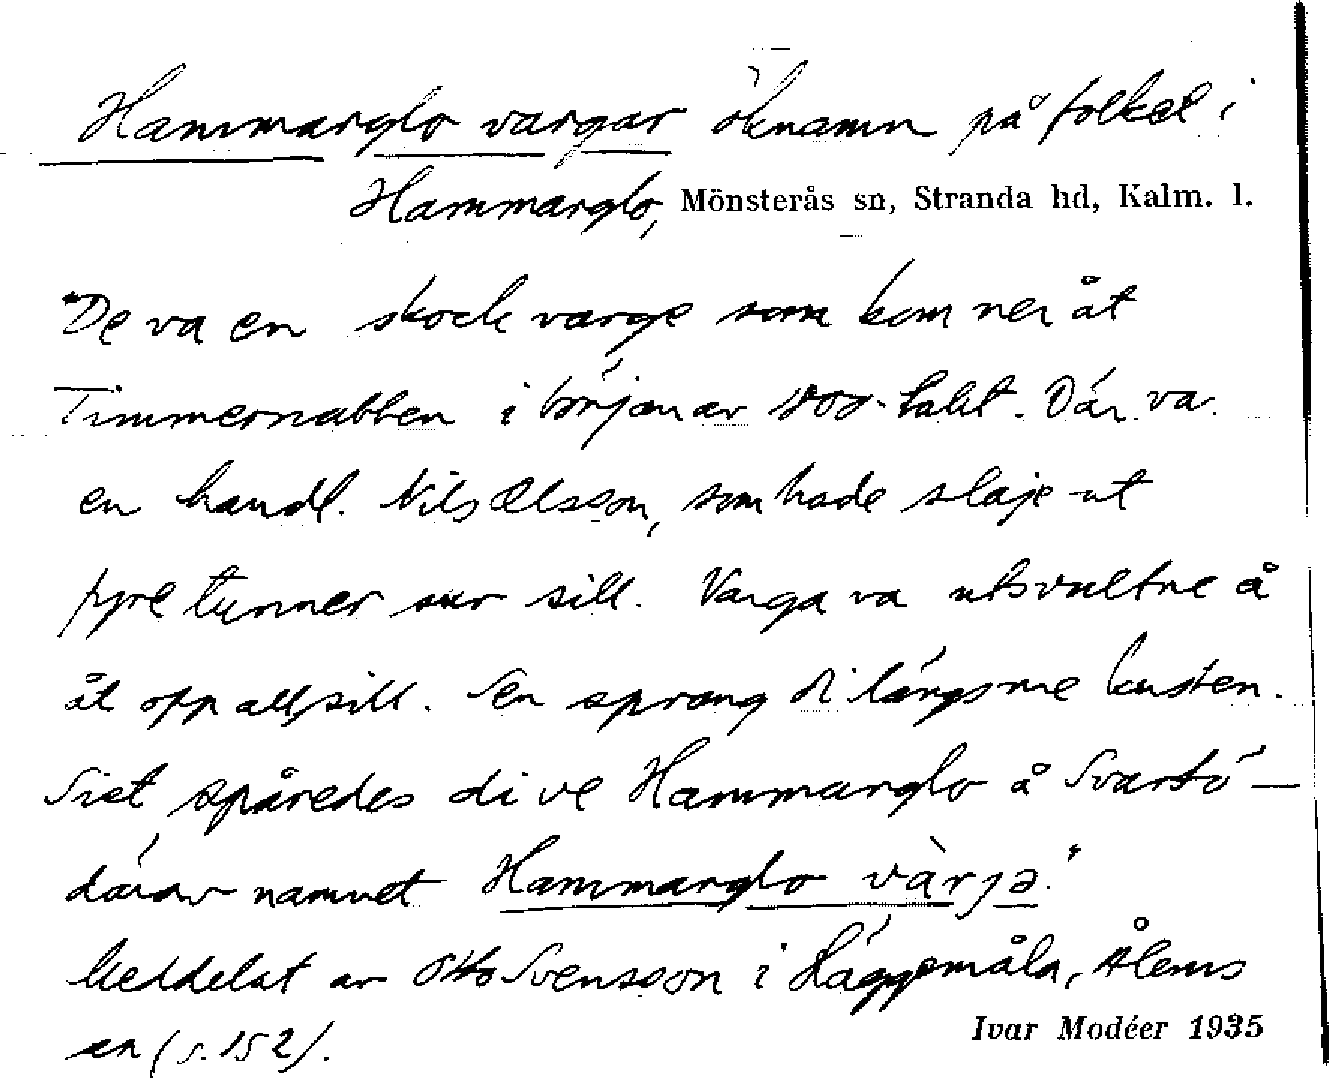 Hammarglo vargar öknamn på folket i
Hammarglo, Mönsterås sn, Stranda hd, Kalm. l.
"De va en skock varge som kom ner åt
Timmernabben i början av 1800-talet. Där va
en handl. Nils Olsson, som hade slaje ut
fyre tunner sur sill. Varga va utsvultne å
åt opp all sill. Sen sprang di längsme kusten.
Sist spåredes di ve Hammarglo å Svartö —
därav namnet Hammarglo värjə."
Meddelat av Otto Svensson i Häggemåla, Ålems
sn (s. 152).
Ivar Modéer 1935